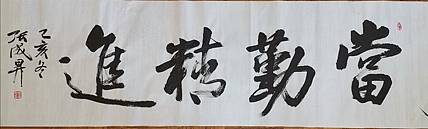 當勤精進
乙亥冬
張成昇